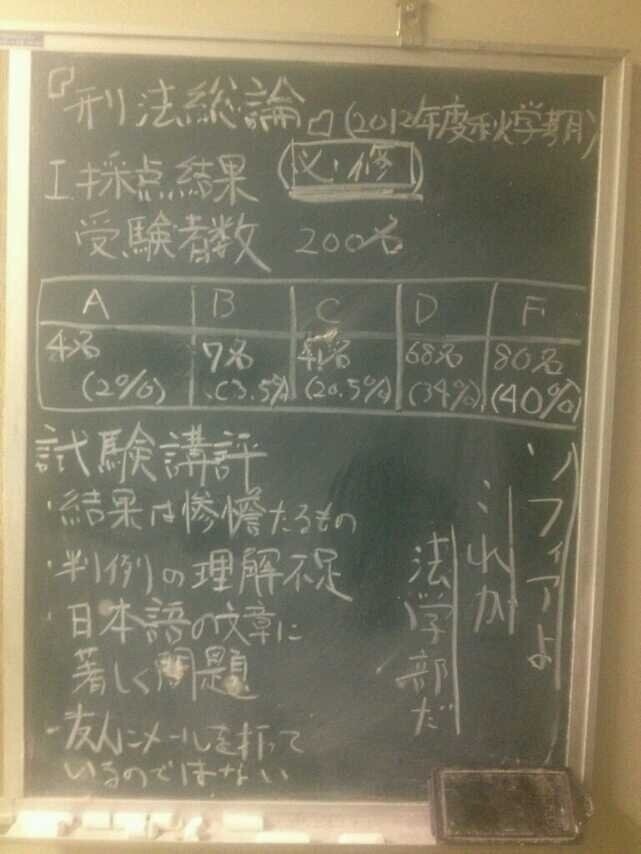 『刑法総論』(2012年度秋学期)
I.採点結果 (必修)
受験者数 200名
A B C D F
4名 7名 41名 68名 80名
(2%) (3.5%) (20.5%) (34%) (40%)
試験講評
・結果は惨憺たるもの
・判例の理解不足
・日本語の文章に
著しく問題
-友人にメールを打って
いるのではない
ソフィアよ
これが
法学部だ